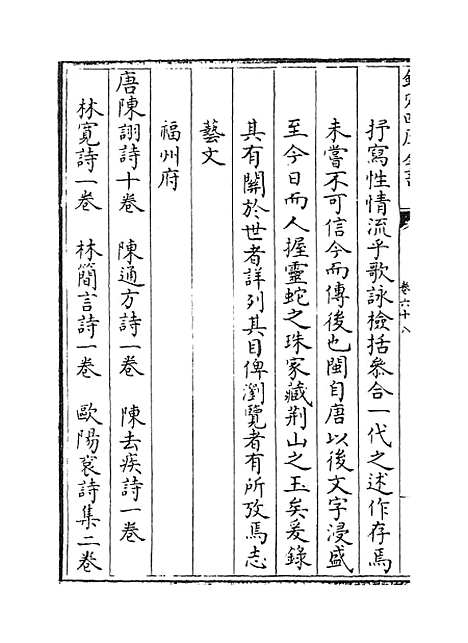 欽定四庫全書
卷六十八
抒寫性情流乎歌詠檢括叅合一代之述作存焉
未嘗不可信今而傳後也閩自唐以後文字浸盛
至今日而人握靈蛇之珠家藏荆山之玉矣爰錄
其有關於世者詳列其目俾瀏覽者有所攷焉志
藝文
福州府
唐陳詡詩十卷 陳通方詩一卷 陳去疾詩一卷
林寛詩一卷 林簡言詩一卷 歐陽袞詩集二卷